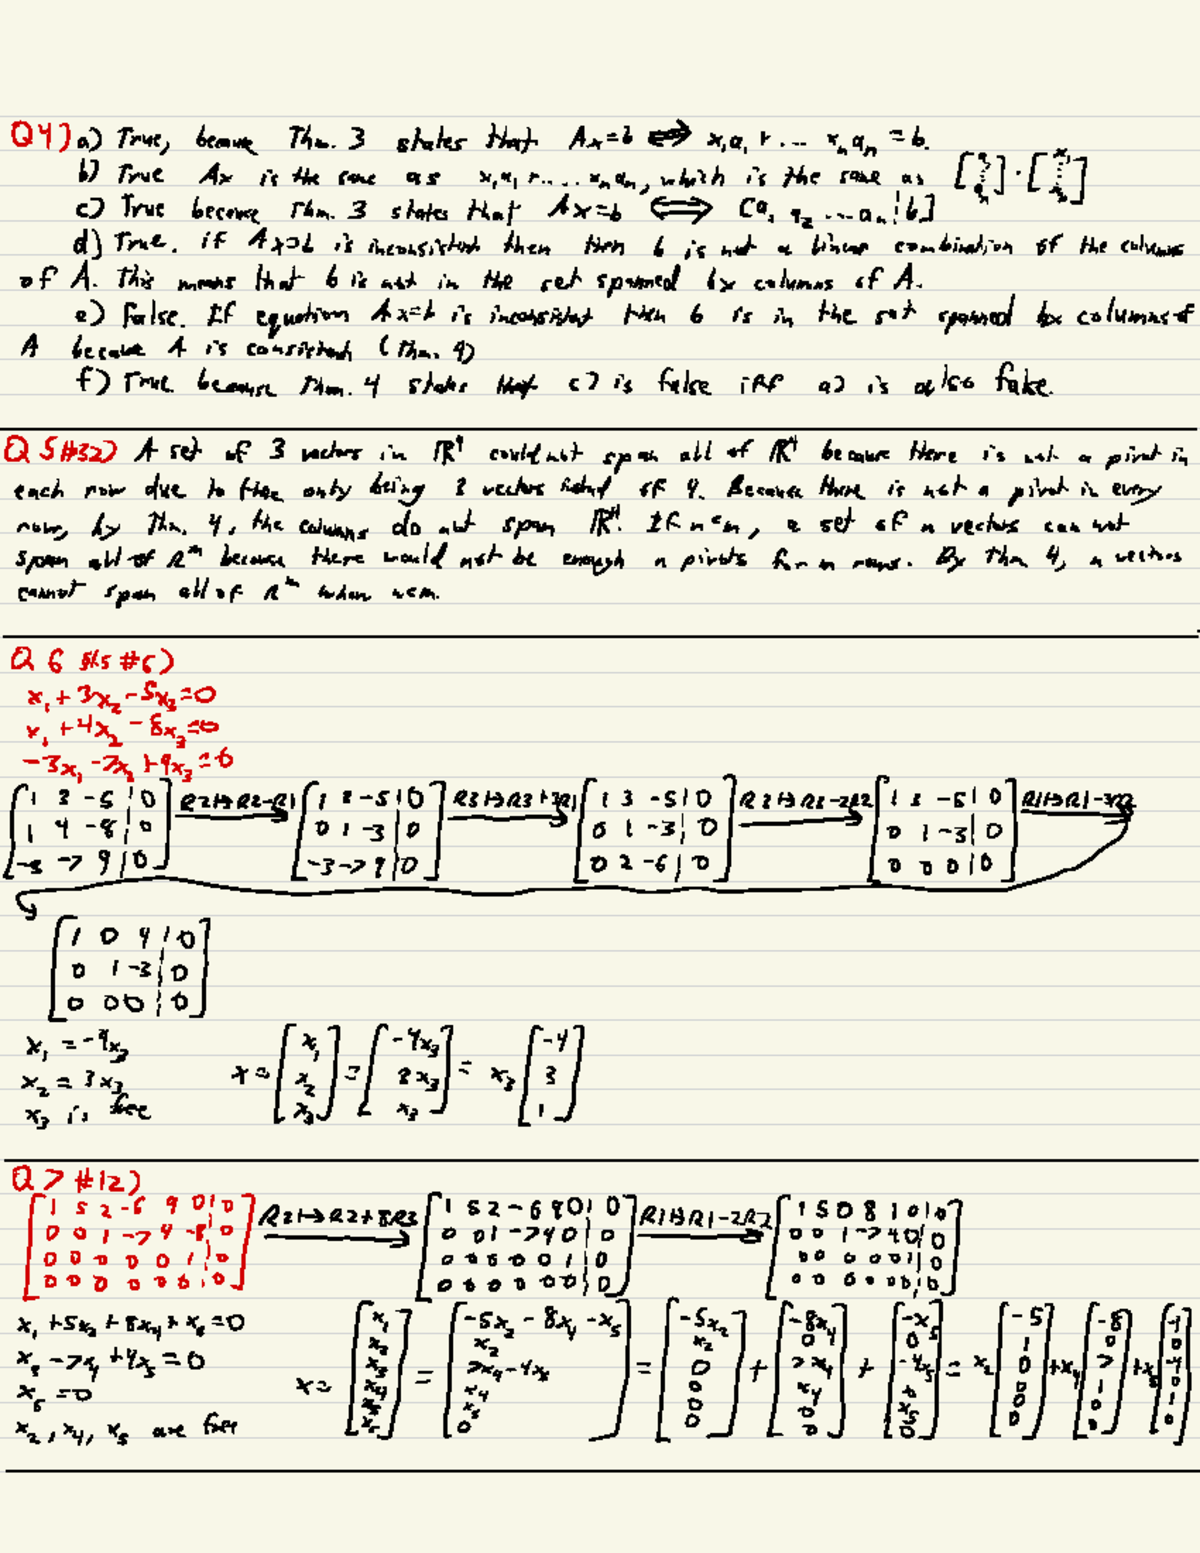 Q4) a) True, because Thm. 3 states that Ax=b ⟺ x₁a₁ + ... xₙaₙ = b.
b) True Ax is the same as x₁a₁ + .... xₙaₙ, which is the same as [a₁ ⋮ aₙ] · [x₁ ⋮ xₙ]
c) True because Thm. 3 states that Ax=b ⟺ [a₁ a₂ ... aₙ | b]
d) True. if Ax=b is inconsistent then then b is not a linear combination of the columns
of A. This means that b is not in the set spanned by columns of A.
e) False. If equation Ax=b is inconsistent then b is in the set spanned by columns of
A because A is consistent (Thm. 4)
f) True because Thm. 4 states that c) is false iff a) is also false.
Q 5 #32) A set of 3 vectors in ℝ⁴ could not span all of ℝ⁴ because there is not a pivot in
each row due to there only being 3 vectors instead of 4. Because there is not a pivot in every
row, by Thm. 4, the columns do not span ℝ⁴. If n<m, a set of n vectors can not
span all of Rᵐ because there would not be enough n pivots for m rows. By Thm 4, n vectors
cannot span all of Rᵐ when n<m.
Q 6 §1.5 #6)
x₁ + 3x₂ - 5x₃ = 0
x₁ + 4x₂ - 8x₃ = 0
-3x₁ - 7x₂ + 9x₃ = 0
[1 3 -5 | 0] R2↦R2-R1 [1 3 -5 | 0] R3↦R3+3R1 [1 3 -5 | 0] R3↦R3-2R2 [1 3 -5 | 0] R1↦R1-3R2
[1 4 -8 | 0] [0 1 -3 | 0] [0 1 -3 | 0] [0 1 -3 | 0]
[-3 -7 9 | 0] [-3 -7 9 | 0] [0 2 -6 | 0] [0 0 0 | 0]
[1 0 4 | 0]
[0 1 -3 | 0]
[0 0 0 | 0]
x₁ = -4x₃ x = [x₁ x₂ x₃] = [-4x₃ 3x₃ x₃] = x₃ [-4 3 1]
x₂ = 3x₃
x₃ is free
Q 7 #12)
[1 5 2 -6 9 0 | 0] R2↦R2+8R3 [1 5 2 -6 9 0 | 0] R1↦R1-2R2 [1 5 0 8 1 0 | 0]
[0 0 1 -7 4 -8 | 0] [0 0 1 -7 4 0 | 0] [0 0 1 -7 4 0 | 0]
[0 0 0 0 0 1 | 0] [0 0 0 0 0 1 | 0] [0 0 0 0 0 1 | 0]
[0 0 0 0 0 0 | 0] [0 0 0 0 0 0 | 0] [0 0 0 0 0 0 | 0]
x₁ + 5x₂ + 8x₄ + x₅ = 0
x₃ - 7x₄ + 4x₅ = 0
x₆ = 0
x₂, x₄, x₅ are free
x = [x₁ x₂ x₃ x₄ x₅ x₆] = [-5x₂ - 8x₄ - x₅ x₂ 7x₄ - 4x₅ x₄ x₅ 0] = [-5x₂ x₂ 0 0 0 0] + [-8x₄ 0 7x₄ x₄ 0 0] + [-x₅ 0 -4x₅ 0 x₅ 0] = x₂ [-5 1 0 0 0 0] + x₄ [-8 0 7 1 0 0] + x₅ [-1 0 -4 0 1 0]